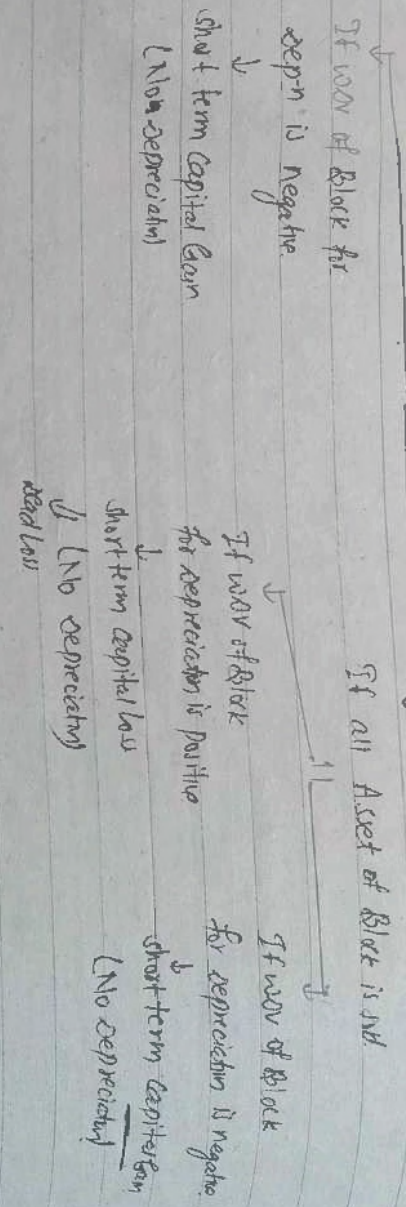 If WDV of Block for
Dep-n is negative.
short term Capital Gain
(Non Depreciation)
If all Asset of Block is sold.
If WDV of Block
for Depreciation is positive
short term capital loss
(No Depreciation)
Dead Loss
If WDV of Block
for Depreciation is negative
short term capital Gain
(No Depreciation)